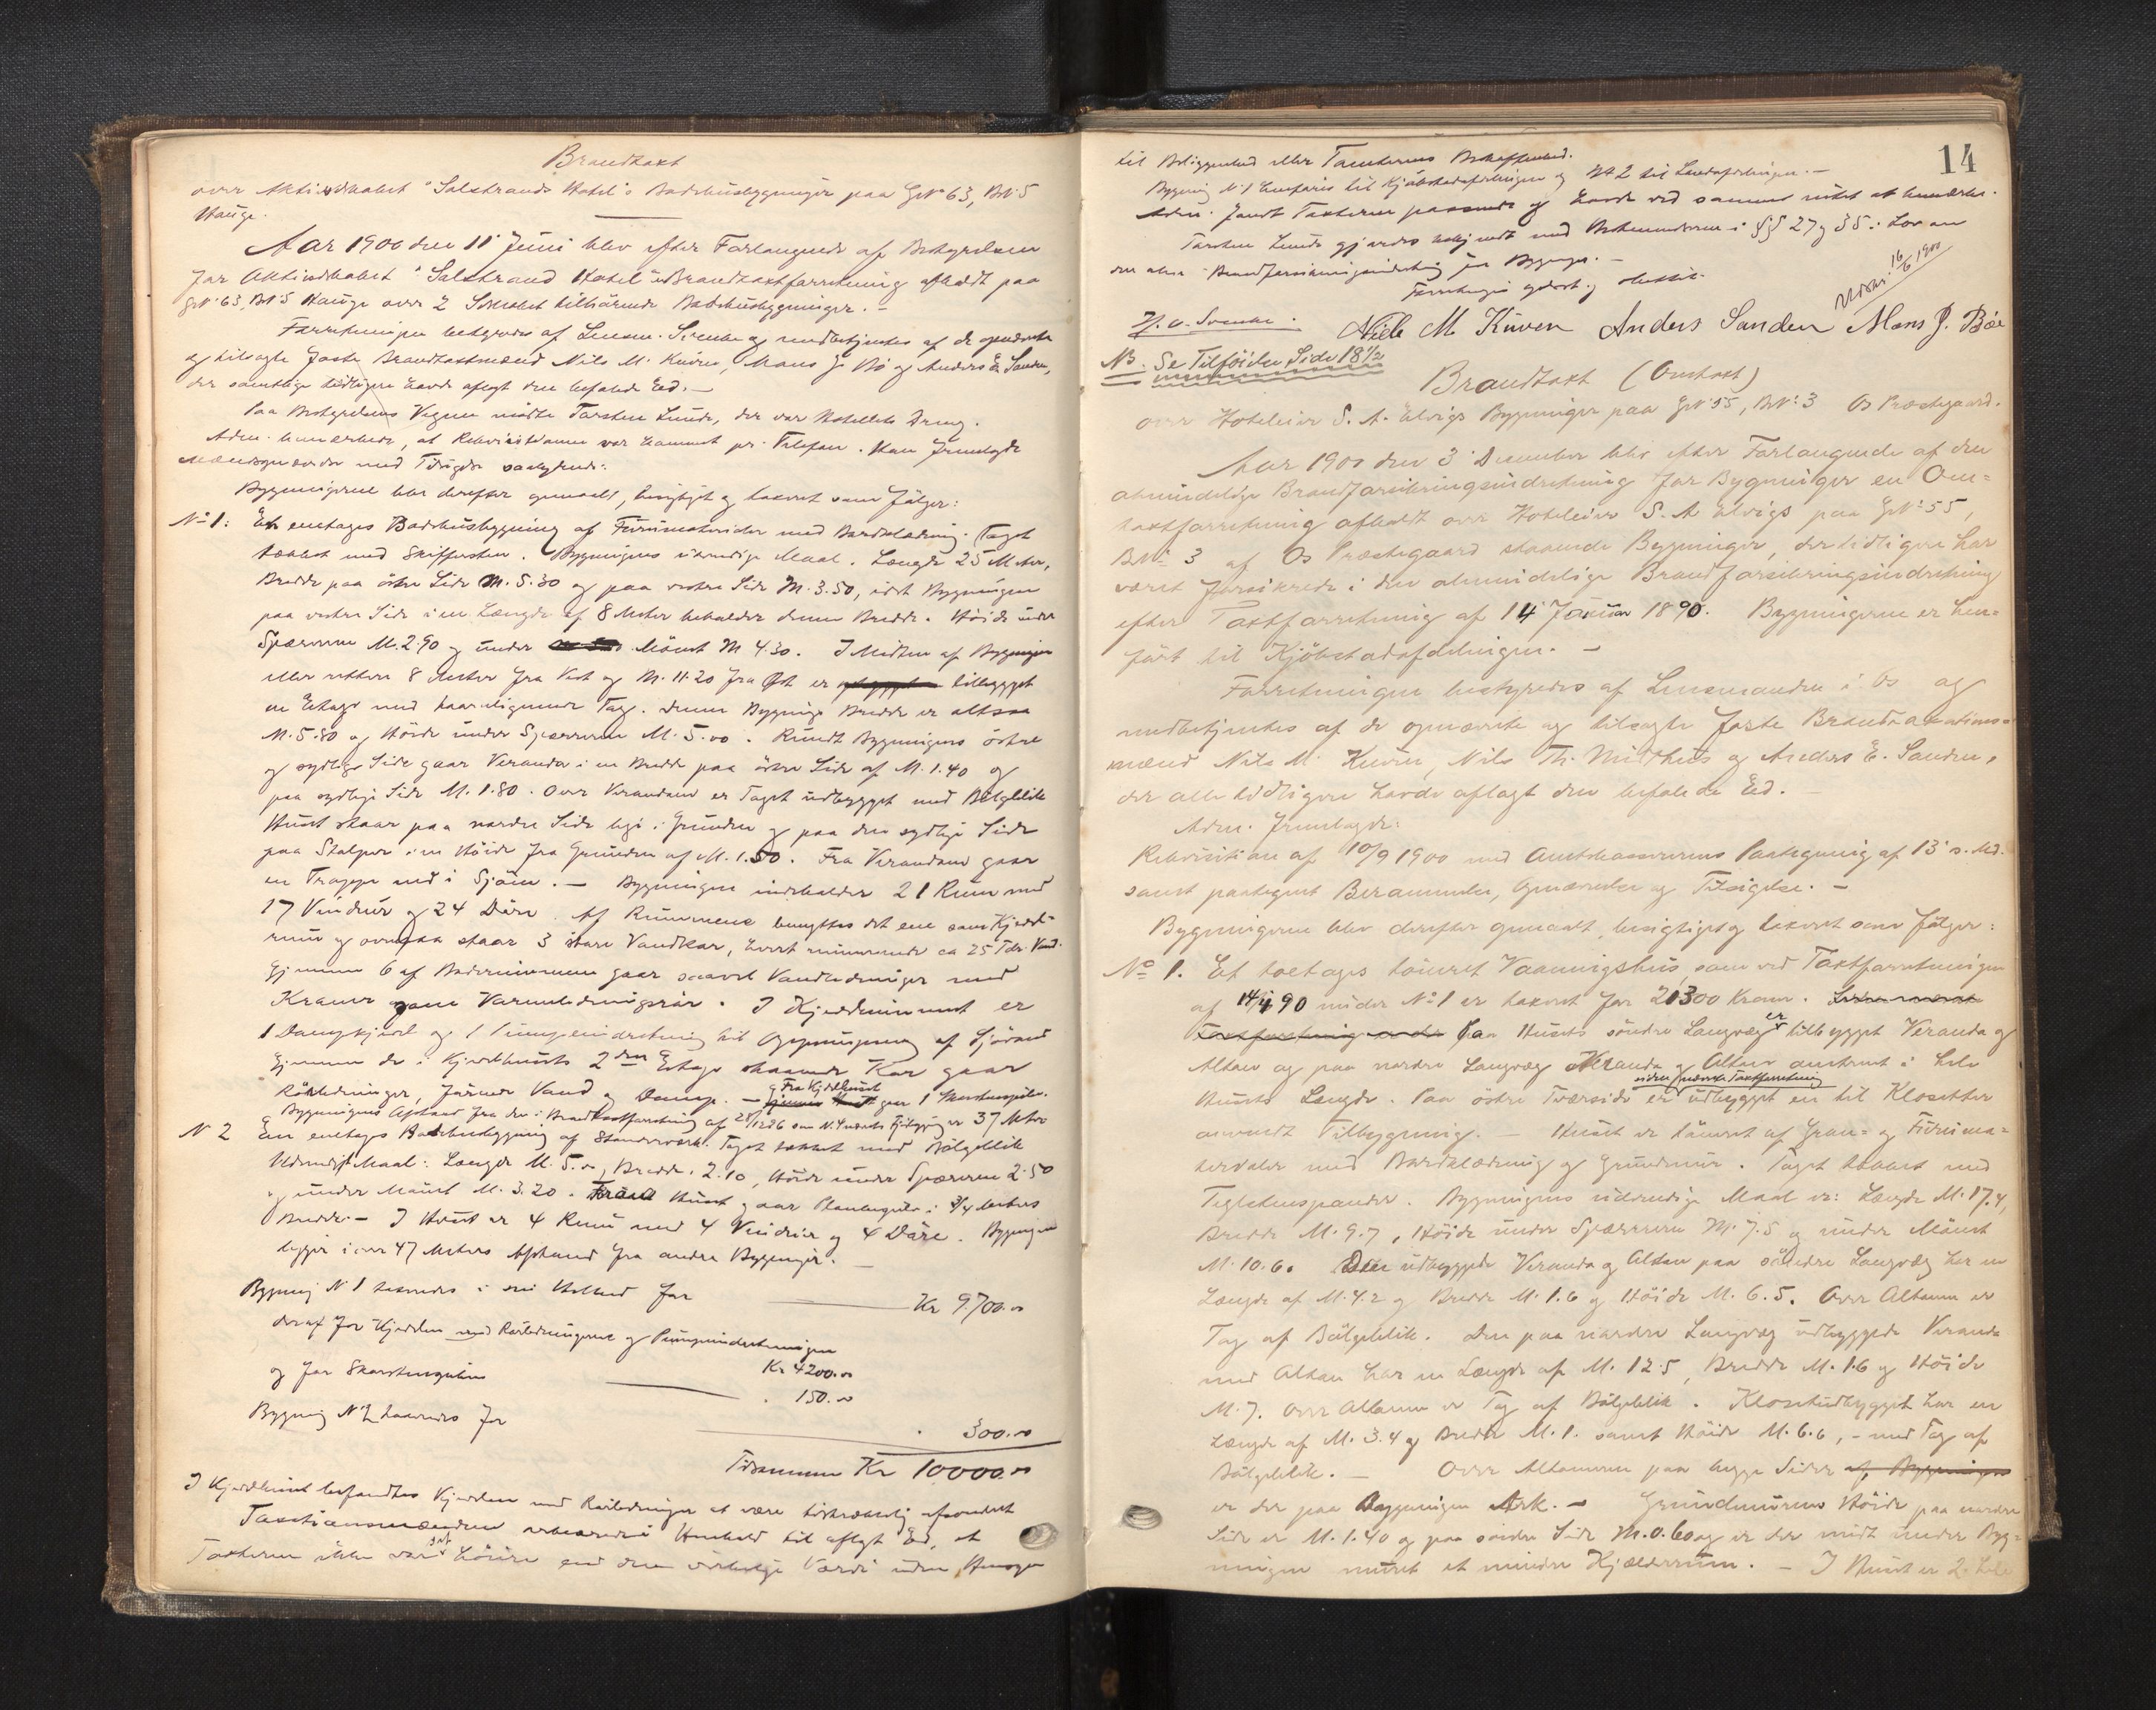 Brandtaxt
over Aktieselskabet "Solstrands Hotel"s Badehusbygninger paa GNo 63, BNo 5
Hauge.
Aar 1900 den 11 Juni blev efter Forlangende af Bestyrelsen
for Aktieselskabet "Solstrand Hotel" Brandtaxtforretning afholdt paa
GNo 63, BNo 5 Hauge over 2 Selskabet tilhørende Badehusbygninger. -
Forretningen bestyredes af Lensm. og medbetjentes af de opnævnte
og tilsagte faste Brandtaxtmænd Nils M. Kuven, Mons J. Bø og Anders E. Sanden,
der samtlige tidligere havde aflagt den befalede Ed. -
Paa Bestyrelsens Vegne mødte Torsten Lunde, der var Hotellets Dreng.
Adm. bemærkede, at Rekvisitionen var kommet pr. Telefon. Han fremlagde
med Tilsigelse
Bygningerne blev derefter opmaalt, besigtiget og taxeret som følger:
No 1: Et enetages Badehusbygning af Furumaterialer med Bordklædning. Taget
tækket med Skifersten. Bygningens udvendige Maal. Længde 25 Meter,
Bredde paa østre Side M. 5.30 og paa vestre Side M. 3.50, idet Bygningen
paa vestre Side i en Længde af 8 Meter beholder denne Bredde. Høide under
Sperrerne M. 2.90 og under Mønet M 4.30. I Midten af Bygningen
eller rettere 8 Meter fra Vest og M. 11.20 fra Øst er tilbygget
en Etage med Tag. Denne Bygnings Bredde er altsaa
M. 5.80 og Høide under Sperrerne M. 5.00. Rundt Bygningens østre
og sydlige Side gaar Veranda i en Bredde paa østre Side af M. 1.40 og
paa sydlige Side M. 1.80. Over Verandaen er Taget udbygget med Bølgeblik
Huset staar paa nordre Side lige i Grunden og paa den sydlige Side
paa Stolper i en Høide fra Grunden af M. 1.50. Fra Verandaen gaar
en Trappe ned i Sjøen. - Bygningen indeholder 21 Rum med
17 Vinduer og 24 Døre. Af Rummene benyttes det ene som Kjedel-
rum og ovenpaa staar 3 store Vandkar, hvert rummende ca 25 Tdr. Vand.
Gjennem 6 af Baderummene gaar saavel Vandledninger med
Kraner som Varmeledningsrør. I Kjedelrummet er
1 Dampkjedel og 1 Pumpeindretning til Oppumpning af Sjøvand
Gjennem de i Kjedelhusets 2den Etage staaende Kar gaar
Rørledninger, førende Vand og Damp. - Fra Kjedelhuset gaar 1 Skorstenspibe.
Bygningens Afstand fra den i Brandtaxtforretning af er 37 Meter
N 2 En enetages Badehusbygning af Standerværk. Taget tækket med Bølgeblik
Udvendigt Maal: Længde M. 5.00, Bredde 2.10, Høide under Sperrerne 2.50
og under Mønet M. 3.20. Huset gaar i 3/4 Meters
Bredde. - I Huset er 4 Rum med 4 Vinduer og 4 Døre. Bygningen
ligger i over 47 Meters Afstand fra andre Bygninger. -
Bygning N 1 taxeredes i sin Helhed for Kr 9700.00
deraf for Kjedelen med Rørledningerne og Pumpeindretningen
Kr 4200.00
og for Skorstenspiben 150.00
Bygning N 2 taxeredes for 300.00
Tilsammen Kr 10000.00
I Kjedelhuset befandtes Kjedelen med Rørledninger at være tilstrækkelig afsondret
Taxtionsmændene erklærede i Henhold til aflagt Ed, at
Taxterne ikke var sat høiere end den virkelige Værdi uden Hensyn
14
til Beliggenhed eller Tomternes Beskaffenhed.
Bygning N 1 henføres til Kjøbstadafdelingen og No 2 til Landafdelingen. -
Adm. fandt Taxterne passende og havde ved samme intet at bemærke.
Torsten Lunde gjordes bekjendt med Bestemmelserne i §§ 27 og 35 i Lov om
den alm. Brandforsikringsindretning for Bygninger. -
Forretningen oplæst og sluttet.
Udskr. 16/6 1900
Nils M. Kuven Anders Sanden Mons J. Bøe
NB. Se Tilføielse Side 18 1/2
Brandtaxt (Omtaxt)
over Hoteleier S. A. Elvigs Bygninger paa GNo 55, BNo 3 Os Præstegaard.
Aar 1900 den 3 December blev efter Forlangende af den
almindelige Brandforsikringsindretning for Bygninger en Om-
taxtforretning afholdt over Hoteleier S. A. Elvigs paa GNo 55,
BNo 3 af Os Præstegaard staaende Bygninger, der tidligere har
været forsikrede i den almindelige Brandforsikringsindretning
efter Taxtforretning af 14 Januar 1890. Bygningerne er hen-
ført til Kjøbstadafdelingen. -
Forretningen bestyredes af Lensmanden i Os og
medbetjentes af de opnævnte og tilsagte faste Brandtaxations-
mænd Nils M. Kuven, Nils Th. Midthus og Anders E. Sanden,
der alle tidligere havde aflagt den befalede Ed. -
Adm. fremlagde:
Rekvisition af 10/9 1900 med Amtskassererens Paategning af 13 s. Md.
samt paategnet Berammelse, Opnævnelse og Tilsigelse. -
Bygningerne blev derefter opmaalt, besigtiget og taxeret som følger:
No 1. Et toetages tømret Vaaningshus, som ved Taxtforretningen
af 14/1 90 under No 1 er taxeret for 21300 Kroner.
Paa Husets søndre Langvæg er tilbygget Veranda og
Altan og paa nordre Langvæg Veranda og Altan omtrent i hele
Husets Længde. Paa østre Tværside er siden nævnte Taxtforretning udbygget en til Klosetter
anvendt Tilbygning. - Huset er tømret af Gran- og Furuma-
terialer med Bordklædning og Grundmur. Taget tækket med
Teglstenspander. Bygningens udvendige Maal er: Længde M. 17.4,
Bredde M. 9.7, Høide under Sperrerne M. 7.5 og under Mønet
M. 10.6. Den udbyggede Veranda og Altan paa søndre Langvæg har en
Længde af M. 4.2 og Bredde M. 1.6 og Høide M. 6.5. Over Altanen er
Tag af Bølgeblik. Den paa nordre Langvæg udbyggede Veranda
med Altan har en Længde af M. 12.5, Bredde M. 1.6 og Høide
M. 7. Over Altanen er Tag af Bølgeblik. Klosetudbygget har en
Længde af M. 3.4 og Bredde M. 1. samt Høide M. 6.6, - med Tag af
Bølgeblik. - Over Altanerne paa begge Sider af Bygningen
er der paa Bygningen Ark. - Grundmurens Høide paa nordre
Side er M. 1.40 og paa søndre Side M. 0.60 og er der midt under Byg-
ningen muret et mindre Kjælderrum. - I Huset er 2 hele